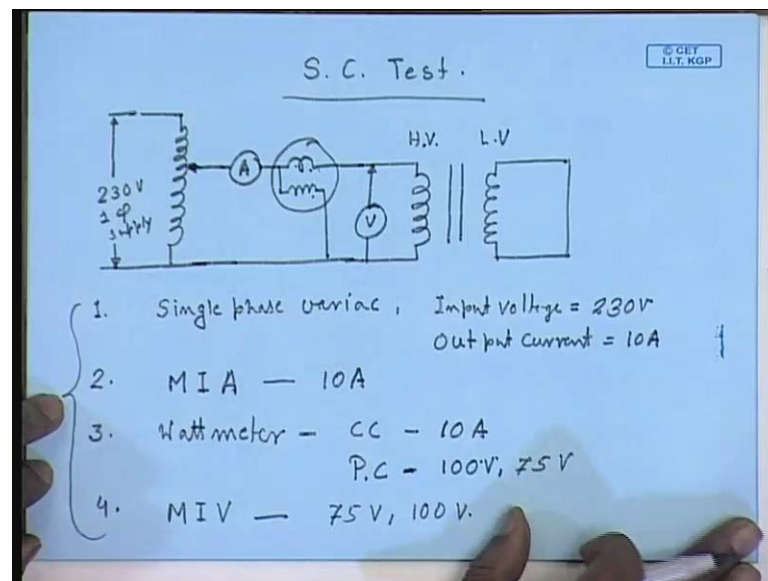 © CET
I.I.T. KGP
S. C. Test.
H.V. L.V
A
V
230V
1 φ
supply
1. Single phase variac, Input voltage = 230V
Output Current = 10A
2. MIA — 10A
3. Wattmeter – CC – 10A
P.C – 100V, 75V
4. MIV — 75V, 100V.